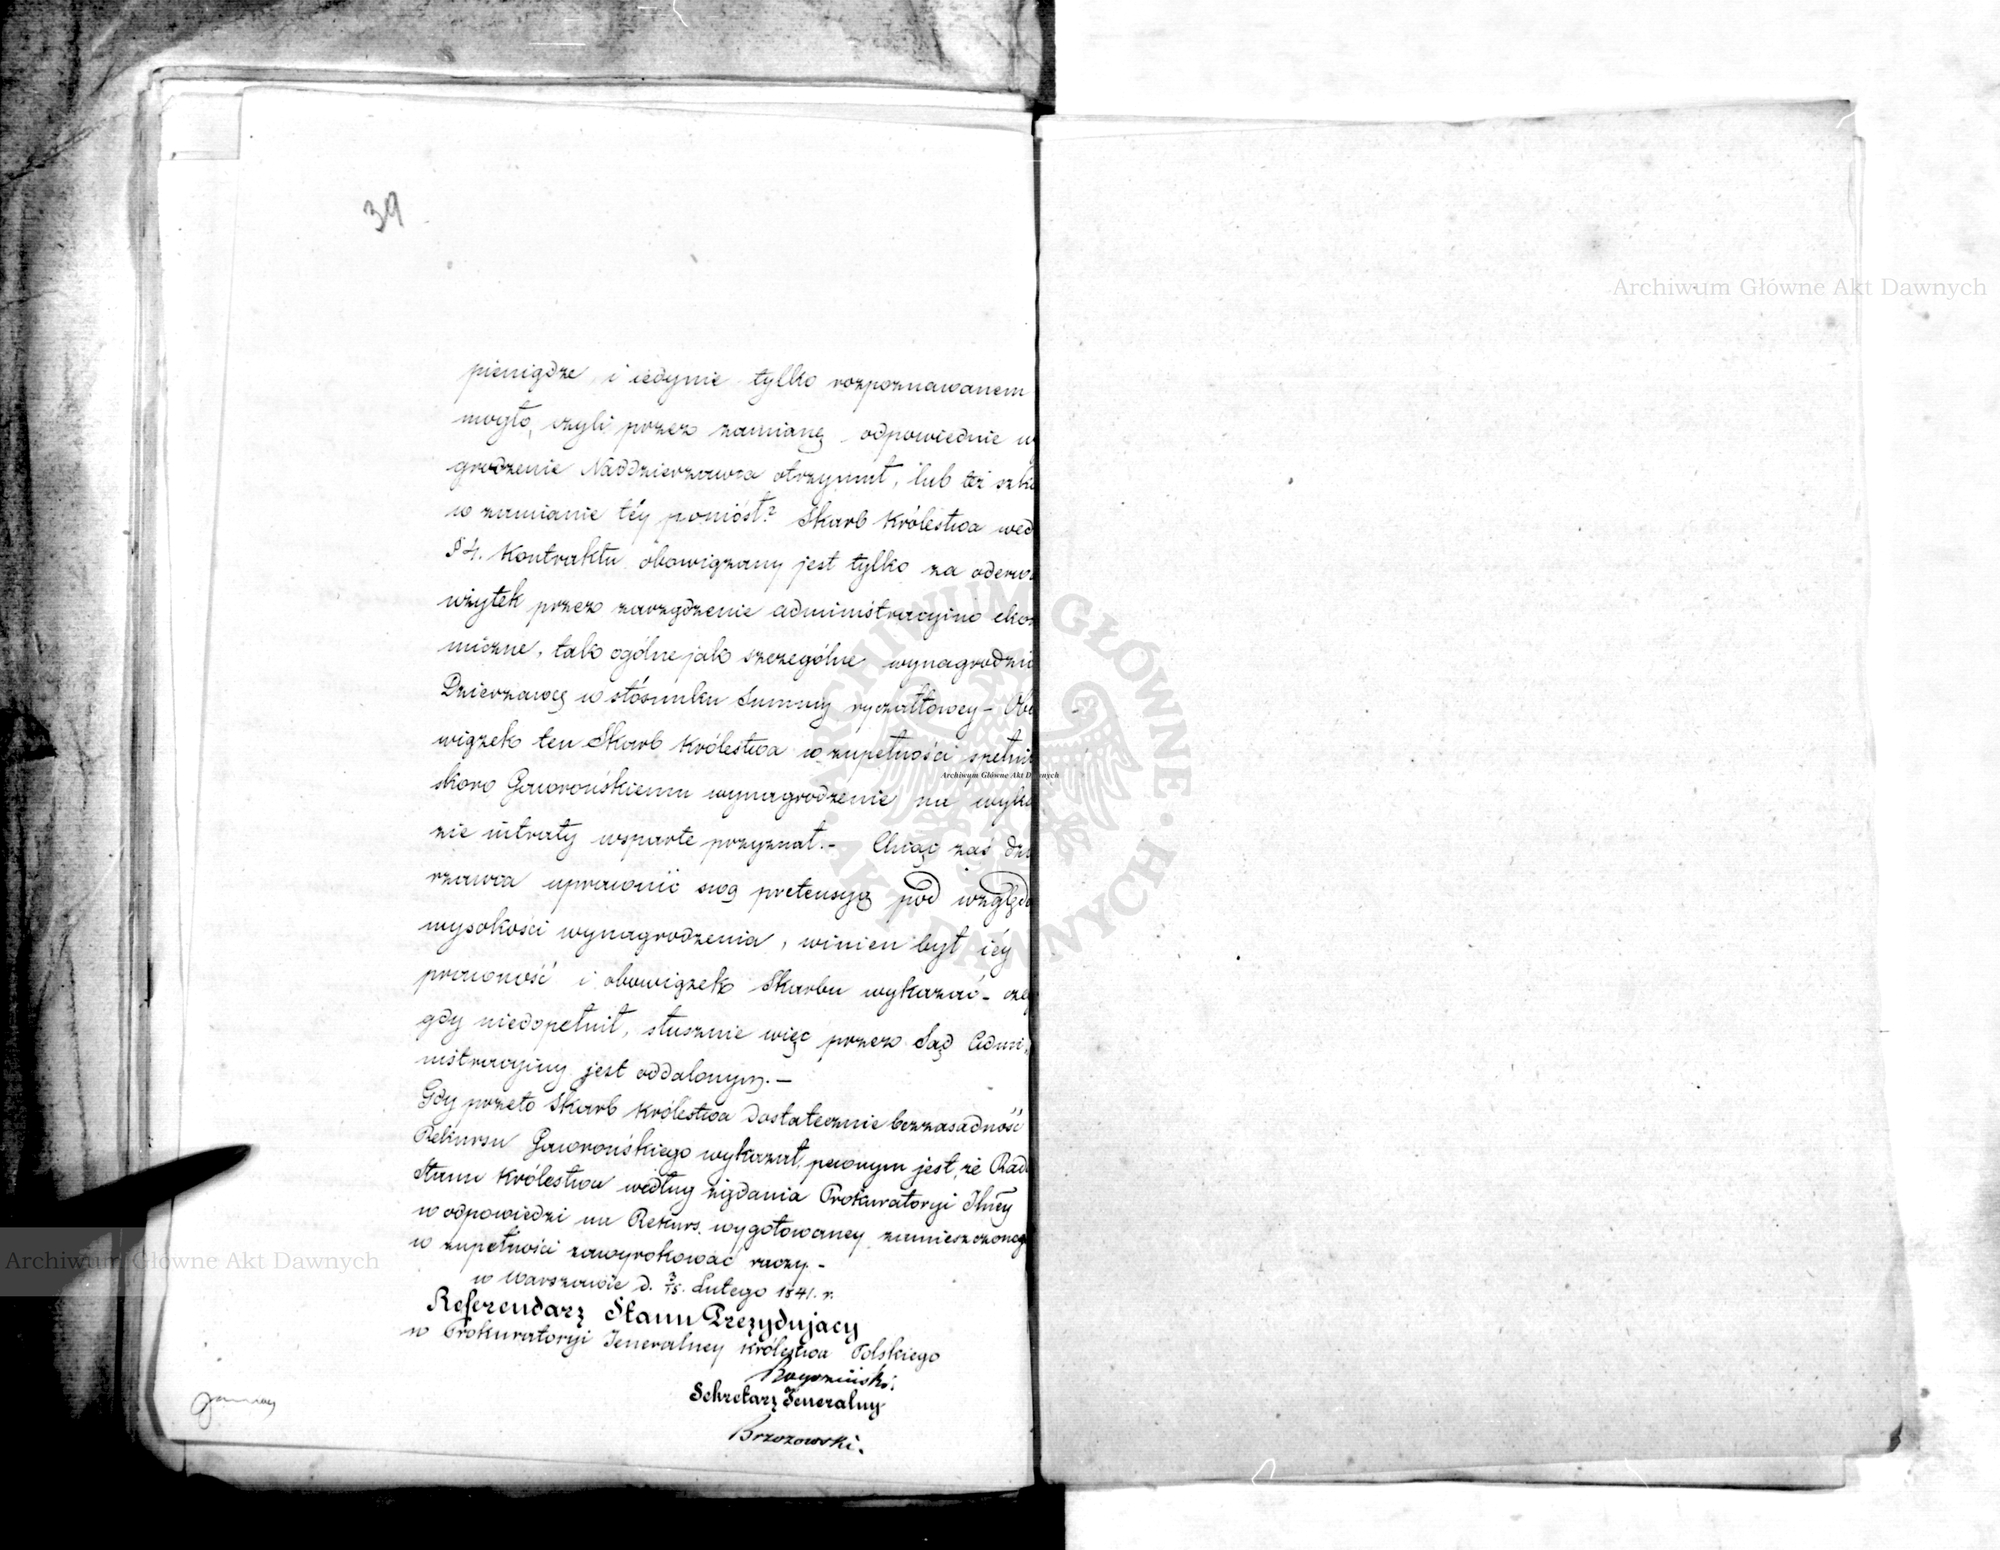 39
pieniądze i iedynie tylko rozpoznawanem
mogło, czyli przez zamianę odpowiednie wy
grodzenie Naddzierzawca otrzymał, lub też szko
w zamianie téy poniósł? Skarb Królestwa wed
§ 4. Kontraktu obowiązany jest tylko za oderwa
użytek przez zarządzenie administracyino eko
miczne, tak ogólne jak szczególne wynagrodzić
Dzierzawcę w stósunku Summy ryczałtowey – Obo
wiązek ten Skarb Królestwa w zupełności spełnił
skoro Gaworońskiemu wynagrodzenie na wyka
zie intraty wsparte przyznał. – Chcąc zaś dzi
rzawca uprawnić swą pretensyą pod względe
wysokości wynagrodzenia, winien był iéy
prawność i obowiązek Skarbu wykazać – cze
gdy niedopełnił, słusznie więc przez Sąd Admi,
nistracyiny jest oddalonym. –
Gdy przeto Skarb Królestwa dostatecznie bezzasadność
Rekursu Gaworońskiego wykazał, pewnym jest, że Rada
Stanu Królestwa według żądania Prokuratoryi Jlnéy
w odpowiedzi na Rekurs wygotowaney zamieszczonego
w zupełności zawyrokować raczy. –
w Warszawie d. 3/15. Lutego 1841. r.
Referendarz Stanu Prezydujacy
w Prokuratoryi Jeneralney Królestwa Polskiego
Sekretarz Jeneralny
Brzozowski.
Archiwum Główne Akt Dawnych
Archiwum Główne Akt Dawnych
Archiwum Główne Akt Dawnych
ARCHIWUM GŁÓWNE AKT DAWNYCH